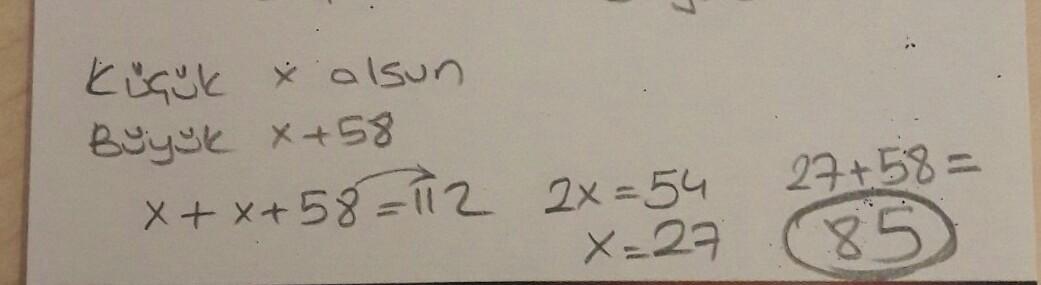 Küçük x olsun
Büyük x+58
x+x+58=112 2x=54 27+58=
x=27 85